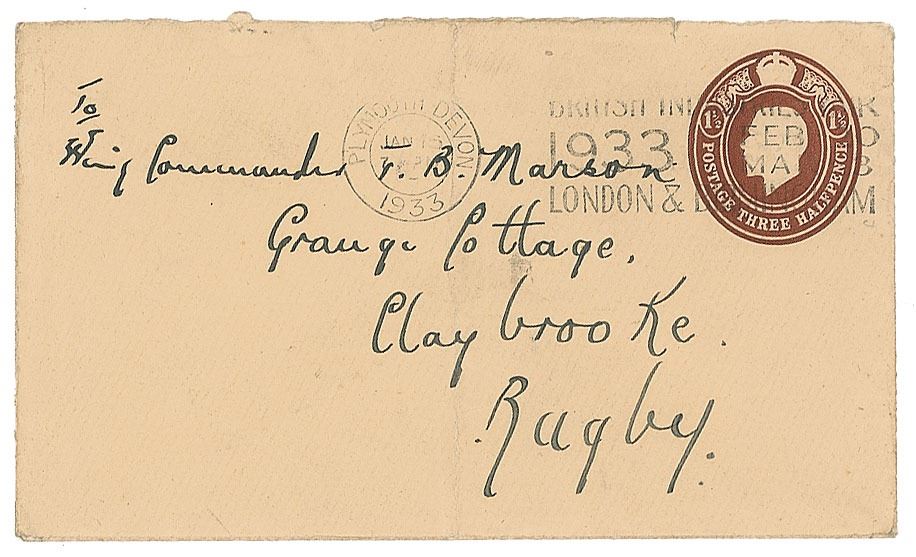 To
Wing Commander T. B. Marson
Grange Cottage.
Claybrooke.
Rugby.
PLYMOUTH DEVON
JAN
1933
BRITISH IND
1933 FEB
MA
LONDON &
1½ 1½
POSTAGE THREE HALFPENCE